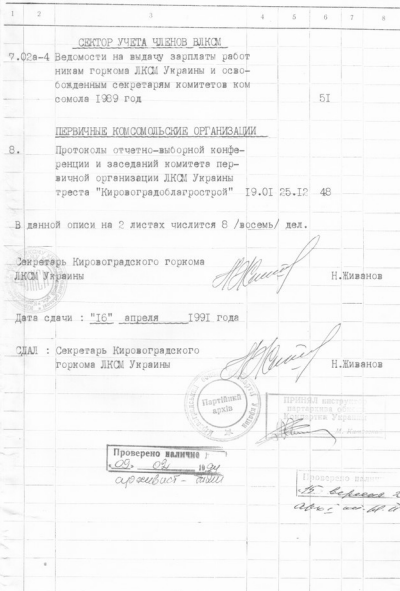 1 2 3 4 5 6 7 8
СЕКТОР УЧЕТА ЧЛЕНОВ ВЛКСМ
7.02а-4 Ведомости на выдачу зарплаты работ
никам горкома ЛКСМ Украины и осво-
божденным секретарям комитетов ком
сомола 1989 год 51
ПЕРВИЧНЫЕ КОМСОМОЛЬСКИЕ ОРГАНИЗАЦИИ
8. Протоколы отчетно-выборной конфе-
ренции и заседаний комитета пер-
вичной организации ЛКСМ Украины
треста "Кировоградоблагрострой" 19.01 25.12 48
В данной описи на 2 листах числится 8 /восемь/ дел.
Секретарь Кировоградского горкома
ЛКСМ Украины Н.Живанов
Дата сдачи : "16" апреля 1991 года
СДАЛ : Секретарь Кировоградского
горкома ЛКСМ Украины Н.Живанов
Партійний
архів
ПРИНЯЛ
Проверено наличие
архивист-
Проверено
15